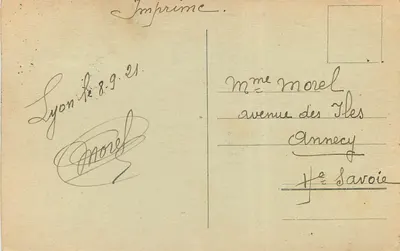 Imprimé.
Lyon le 8.9.21
Morel
Mme Morel
avenue des Iles
Annecy
Hte Savoie